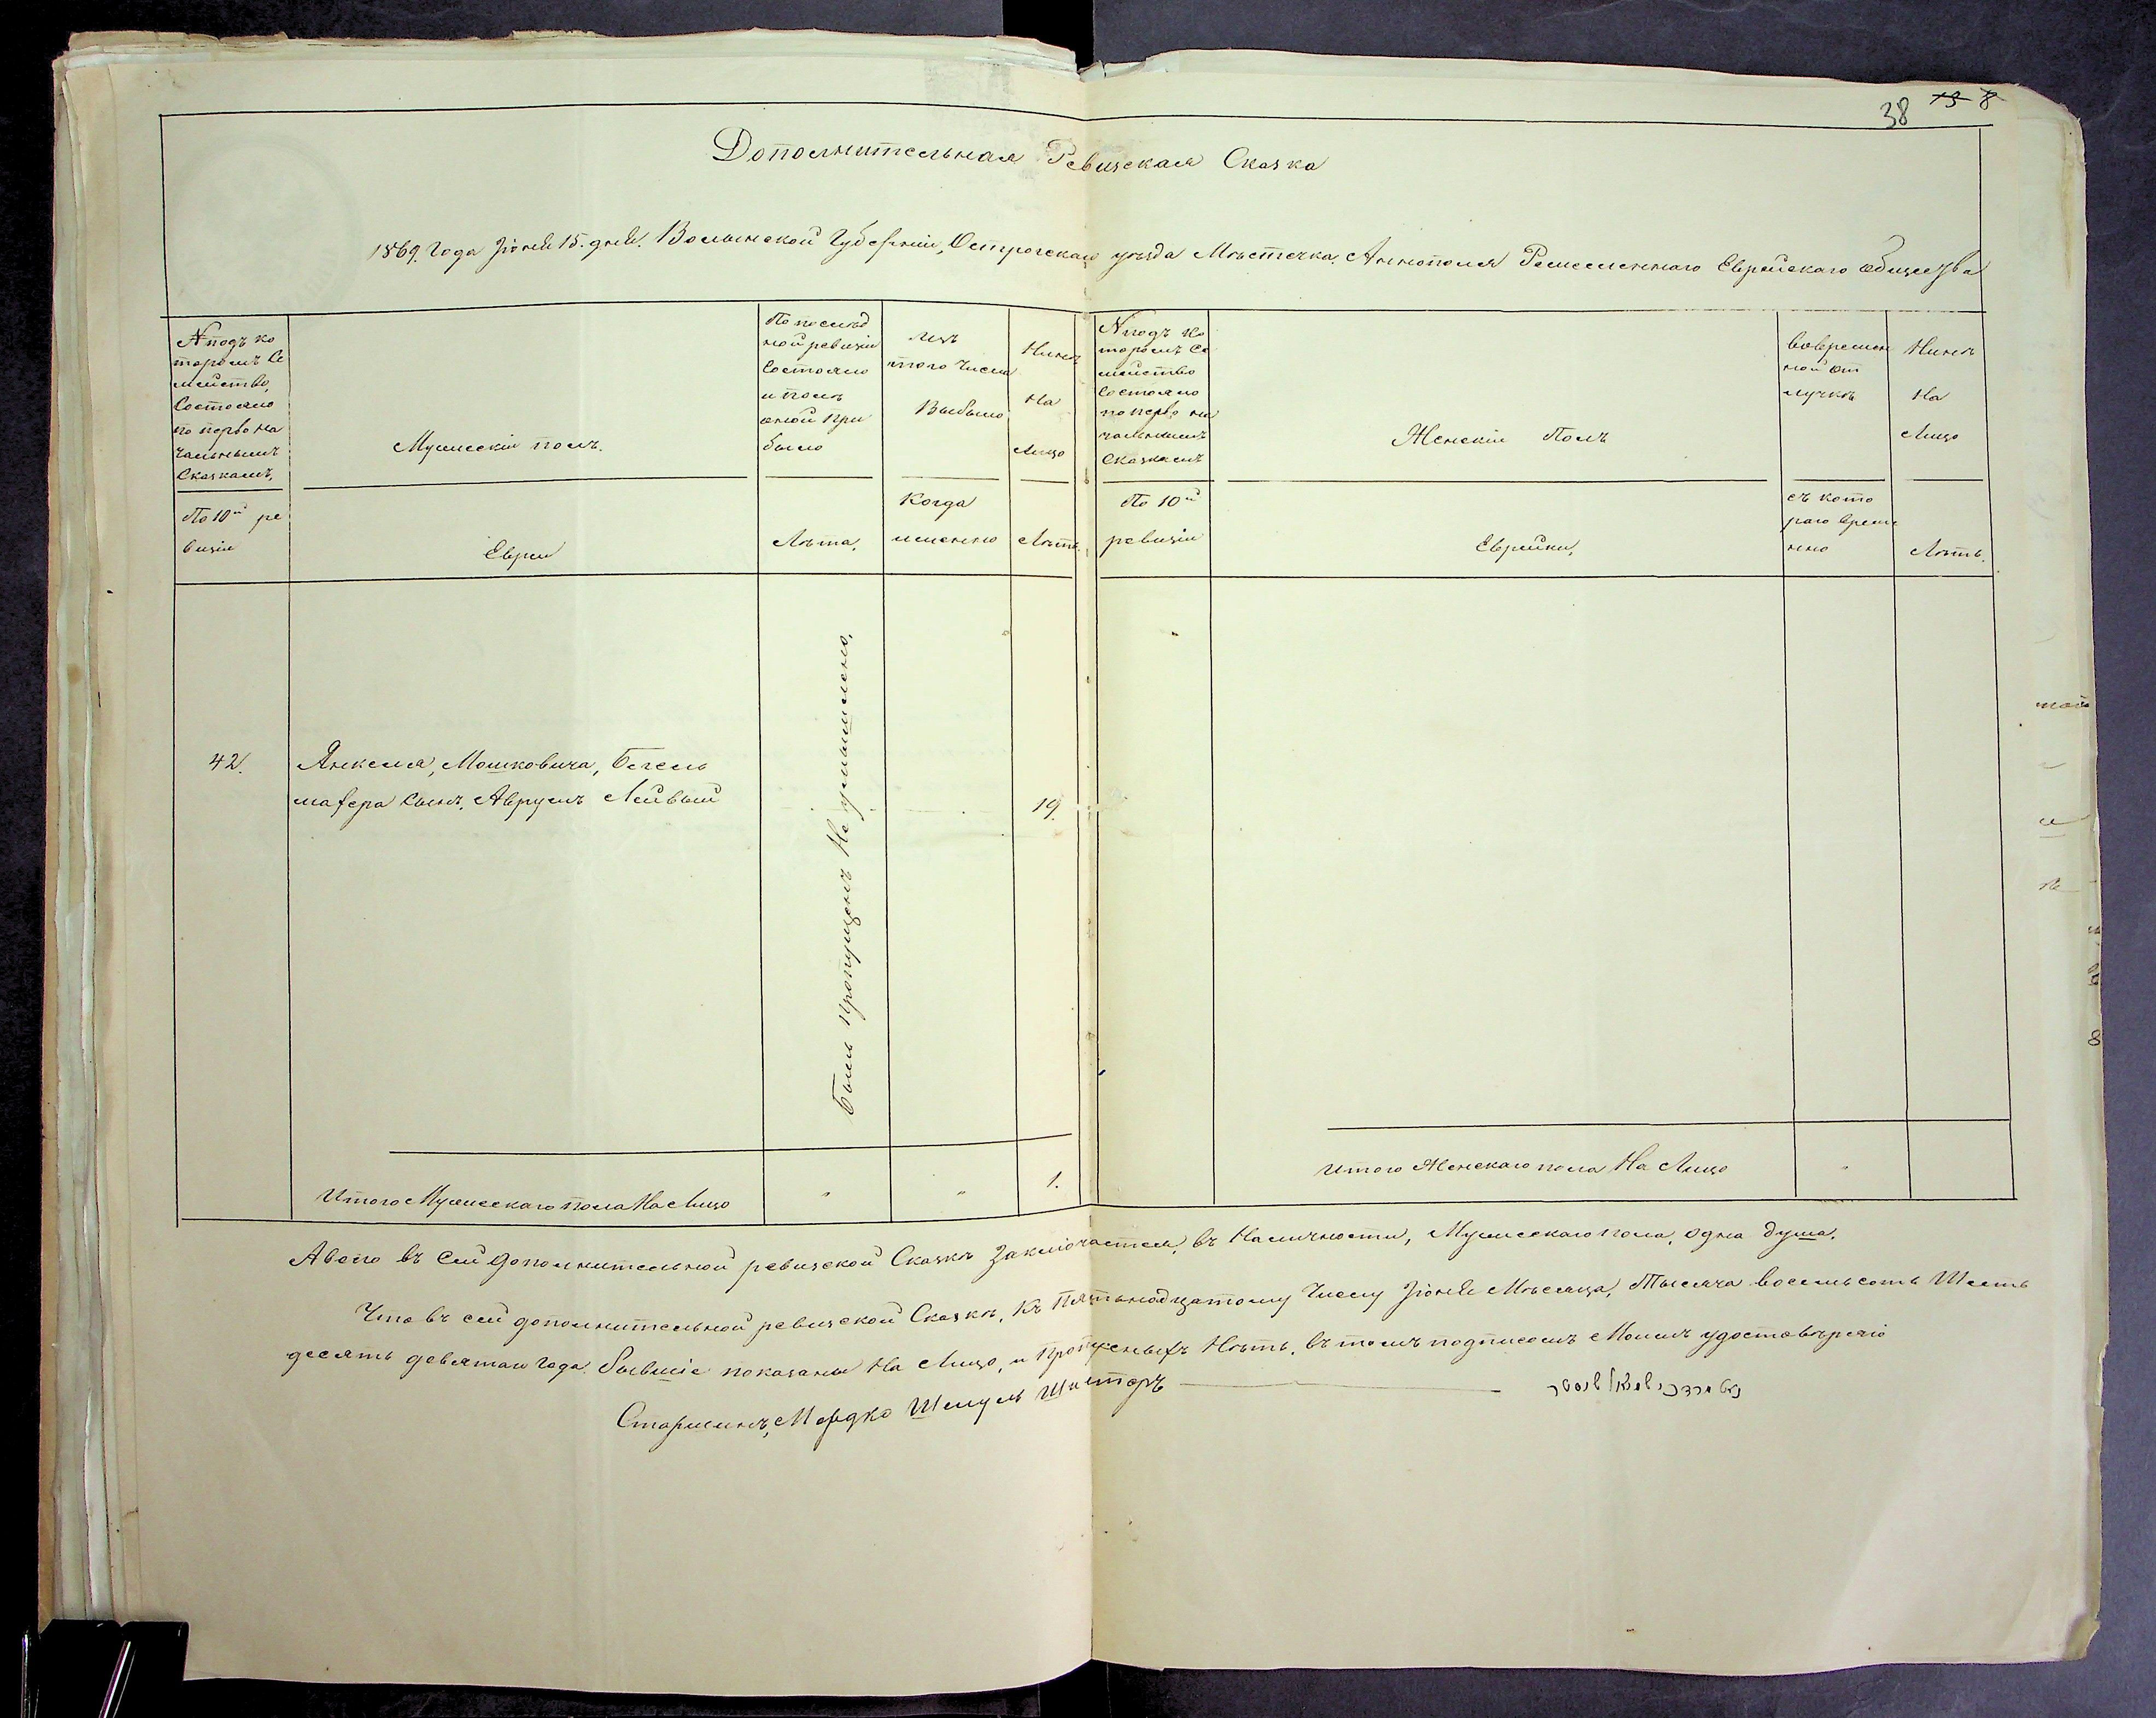 38 13 8
Дополнительная Ревизская Сказка
1869. Года Іюня 15. дня. Волынской Губерніи, Острогскаго уѣзда Мѣстечка Аннополя Ремесленнаго Еврейскаго общества
№ подъ ко
торомъ Се
мейство,
Состояло
по перво на
чальнымъ
Сказкамъ,
Мужескій полъ.
По послѣд
ней ревизіи
Состояло
и послѣ
оной при
было
Изъ
того Числа
Выбыло
Нинѣ
На
Лицо
№ подъ ко
торомъ Се
мейство
Состояло
по перво на
чальнымъ
Сказкамъ
Женскій Полъ
вовремен
ной от
лучкѣ
Нинѣ
На
Лицо
По 10й ре
визіи
Евреи
Лѣта,
Когда
именно
Лѣтъ.
По 10й
ревизіи
Еврейки,
съ кото
раго време
нно
Лѣтъ.
42.
Янкеля, Мошковича, Бегель
мафера Сынъ, Аврумъ Лейвый
Былъ пропущенъ Не умышлено,
19.
Итого Мужескаго пола На Лицо
" " 1.
Итого Женскаго пола На Лицо
"
А всего въ Сей дополнительной ревизской Сказкѣ Заключается, въ Наличности, Мужескаго пола, одна душа.
Что въ сей дополнительной ревизской Сказкѣ, Къ Пятьнадцатому Числу Іюня Мѣсяца, Тысяча восемьсотъ Шесть
десять девятаго Года. Бывшіе показаны На Лицо, и пропусеныхъ Нѣтъ. въ томъ подписомъ Моимъ удостовѣряю
Старшинъ, Мордко Шмуль Шистеръ